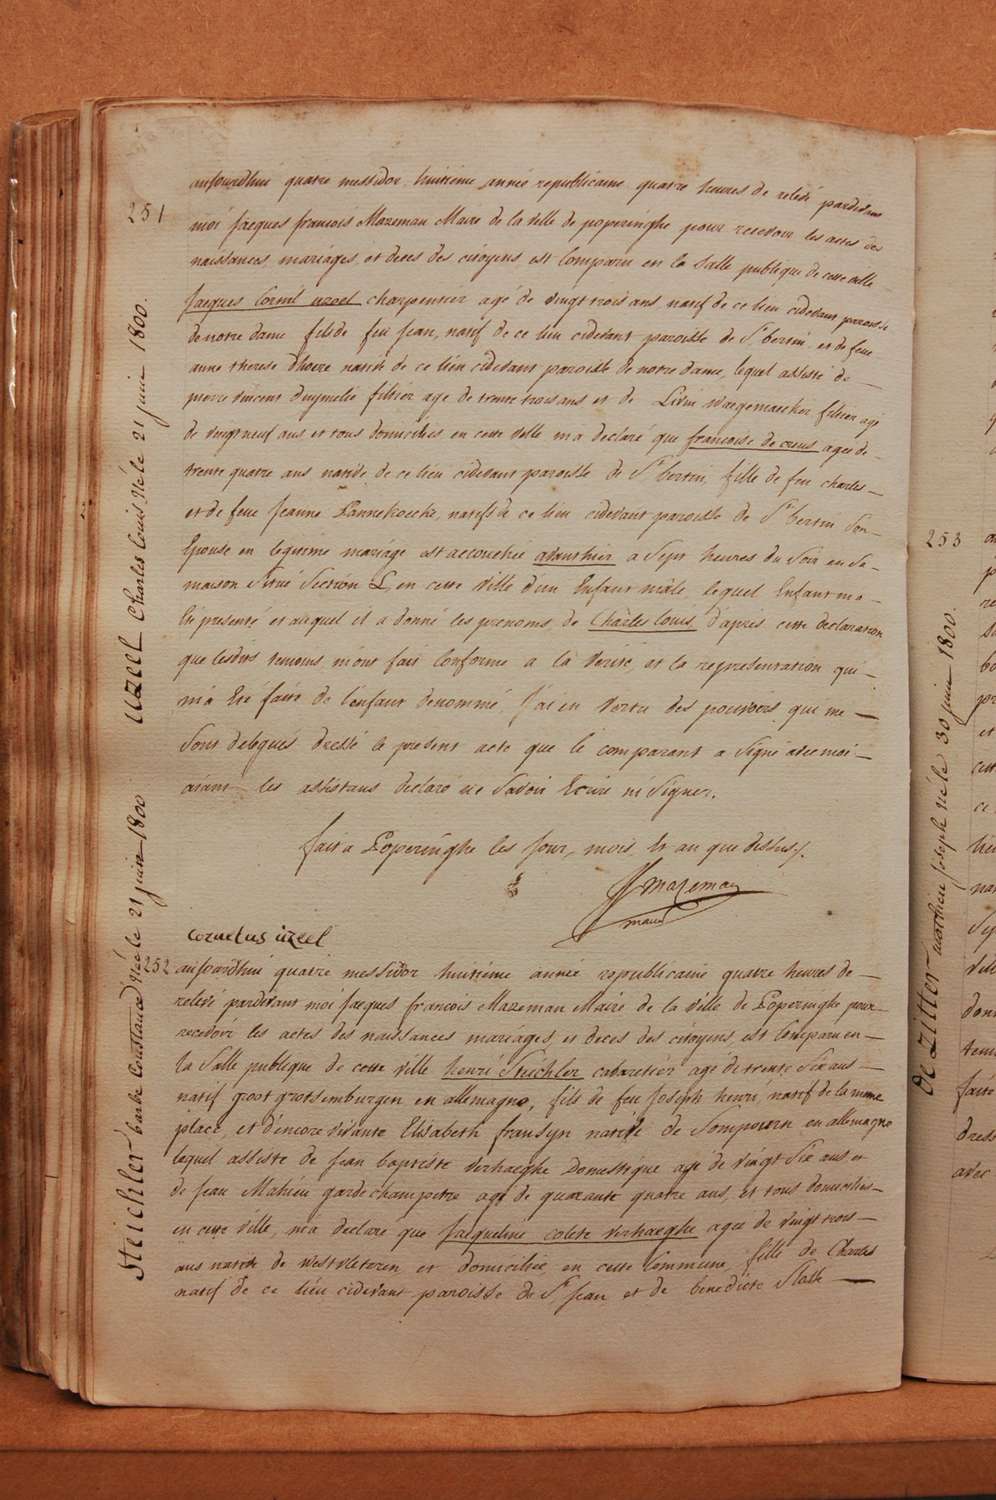 251
aujourdhui quatre messidor huitieme année republicaine quatre heures de relevé pardevant
moi jacques françois Mazeman Maire de la ville de poperinghe pour recevoir les actes des
naissances, mariages, et deces des citoyens, est Comparu en la Salle publique de cette ville
Jacques Cornil uzeel charpentier agé de vingt trois ans natif de ce lieu cidevant paroisse
de notre dame fils de feu jean, natif de ce lieu cidevant paroisse de St bertin et de feue
anne therese dhoere native de ce lieu cidevant paroisse de notre dame, lequel assisté de
pierre vincent filtier agé de trente trois ans et de Livin filtier agé
de vingt neuf ans et tous domiciliés en cette ville m'a declaré que francoise de creus agée de
trente quatre ans native de ce lieu cidevant paroisse de St bertin, fille de feu charles
et de feue jeanne Pannekoecke, natifs de ce lieu cidevant paroisse de St bertin Son
Epouse en legitime mariage est accouchée avanthier a Sept heures du Soir en Sa
maison Situé Section L, en cette ville d'un Enfant mâle, lequel Enfant m'a
Eté presenté et auquel il a donné les prenoms de Charles louis, d'après cette declaration
que lesdits temoins m'ont fait Conforme a la verité, et la representation qui
m'a Eté faite de l'enfant denommé, j'ai en vertu des pouvoirs qui me
Sont delegués dressé le present acte que le comparant a Signé avec moi
aiant les assistans declaré ne Savoir Ecrire ni Signer.
fait a Poperinghe les jour, mois, et an que dessus.
Mazeman
maire
cornelus uzeel
252
aujourdhui quatre messidor huitieme année republicaine quatre heures de
relevé pardevant moi jacques francois Mazeman Maire de la ville de Poperinghe pour
recevoir les actes des naissances mariages, et deces des citoyens, est Comparu en
la Salle publique de cette ville henri Steichler cabaretier agé de trente Six ans
natif groot grotsemburgen en allemagne, fils de feu Joseph henri, natif de la même
place, et d'encore vivante Elisabeth fransyn native de Sompvorn en allemagne
lequel assisté de jean baptiste verhaeghe Domestique agé de vingt Six ans et
de jean Mahieu garde champetre agé de quarante quatre ans, et tous domiciliés
en cette ville, m'a declaré que jacqueline colete verhaeghe agée de vingt trois
ans native de westvleteren et domiciliée en cette Commune, fille de Charles
natif de ce lieu cidevant paroisse de St jean et de benedicte Stalle
Steichler barbe Constance Née le 21 juin 1800
uzeel Charles Louis Né le 21 juin 1800.
253
de Zitter mathieu joseph Né le 30 juin 1800.